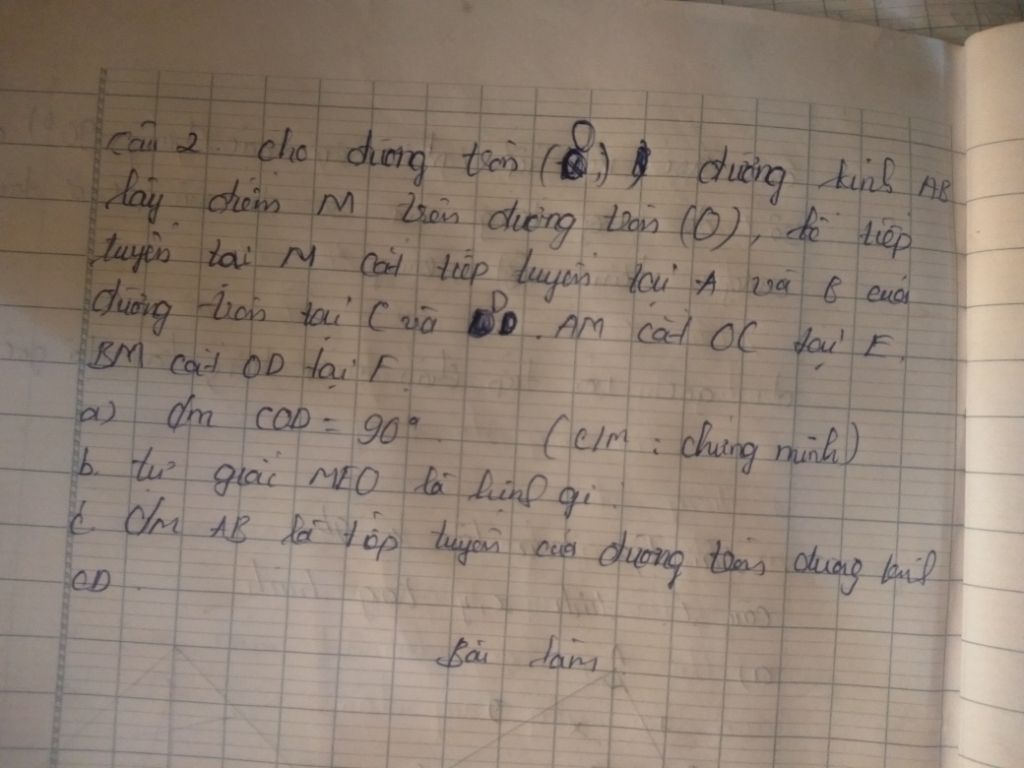 Câu 2. Cho đường tròn (O,) đường kính AB
lấy điểm M trên đường tròn (O), kẻ tiếp
tuyến tại M cắt tiếp tuyến tại A và B của
đường tròn tại C và D. AM cắt OC tại E,
BM cắt OD tại F.
a) C/m COD = 90° (C/M : chứng minh)
b. tứ giác MEO là hình gì
c. C/m AB là tiếp tuyến của đường tròn đường kính
CD
Bài làm